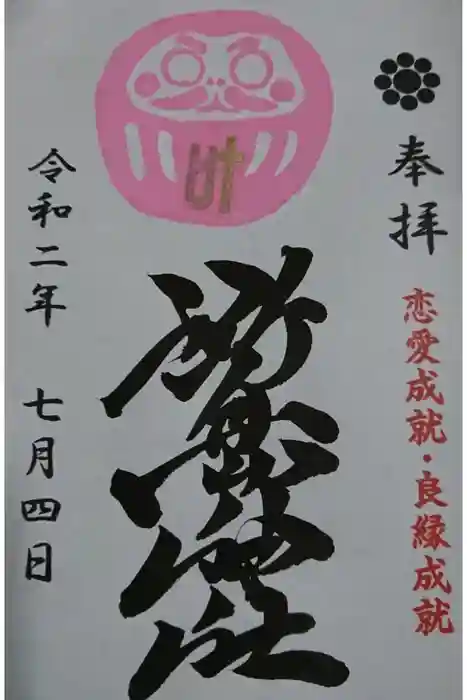 奉拝
恋愛成就・良縁成就
叶
令和二年 七月四日